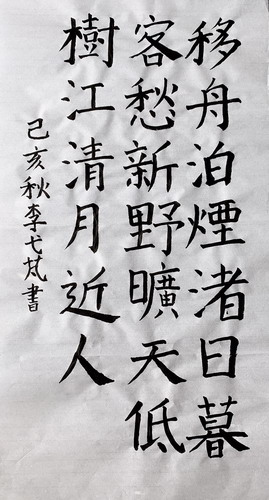 移舟泊煙渚日暮
客愁新野曠天低
樹江清月近人
己亥秋李弋芃書